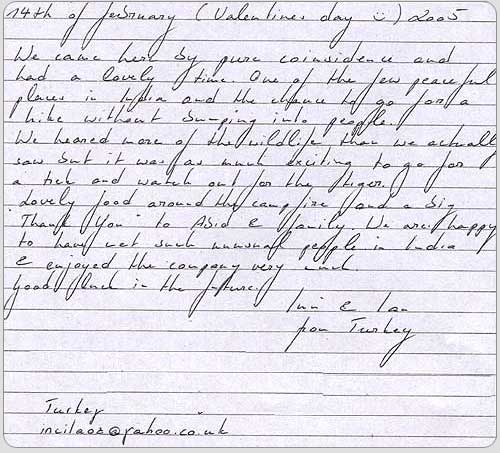 14th of february (Valentines day ü) 2005
We came here by pure coinsidence and
had a lovely time. One of the few peaceful
places in India and the chance to go for a
hike without bumping into people.
We heared more of the wildlife than we actually
saw but it was as much exciting to go for
a trek and watch out for the tiger.
Lovely food around the campfire and a big
"Thank You" to Abid & family. We are happy
to have met such unusual people in India
& enjoyed the company very much.
Good luck in the future.
& Ian
from Turkey
Turkey
incilaoz@yahoo.co.uk